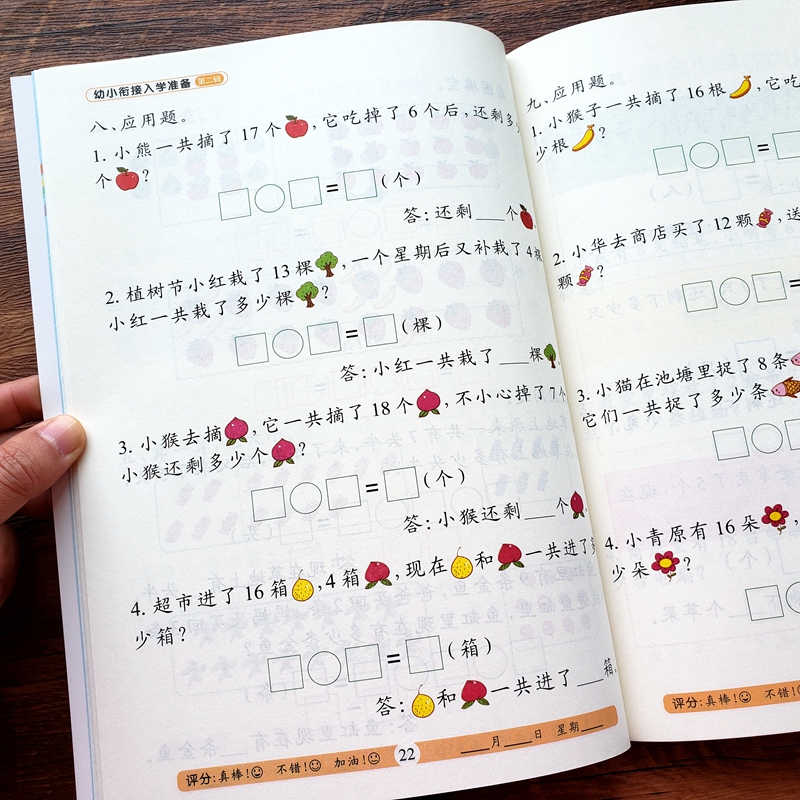 幼小衔接入学准备 第二辑
八、应用题。
1. 小熊一共摘了17个,它吃掉了6个后,还剩多
个?
=(个)
答:还剩___个
2. 植树节小红栽了13棵,一个星期后又补栽了4棵
小红一共栽了多少棵?
=(棵)
答:小红一共栽了___棵
3. 小猴去摘,它一共摘了18个,不小心掉了7个
小猴还剩多少个?
=(个)
答:小猴还剩___个
4. 超市进了16箱,4箱,现在和一共进了
少箱?
=(箱)
答:和一共进了___箱
评分:真棒! 不错! 加油! 22 ___月___日 星期___
九、应用题。
1. 小猴子一共摘了16根,它吃
少根?
=
2. 小华去商店买了12颗,送
颗?
=
3. 小猫在池塘里捉了8条
它们一共捉了多少条
4. 小青原有16朵,
少朵?
评分:真棒! 不错!